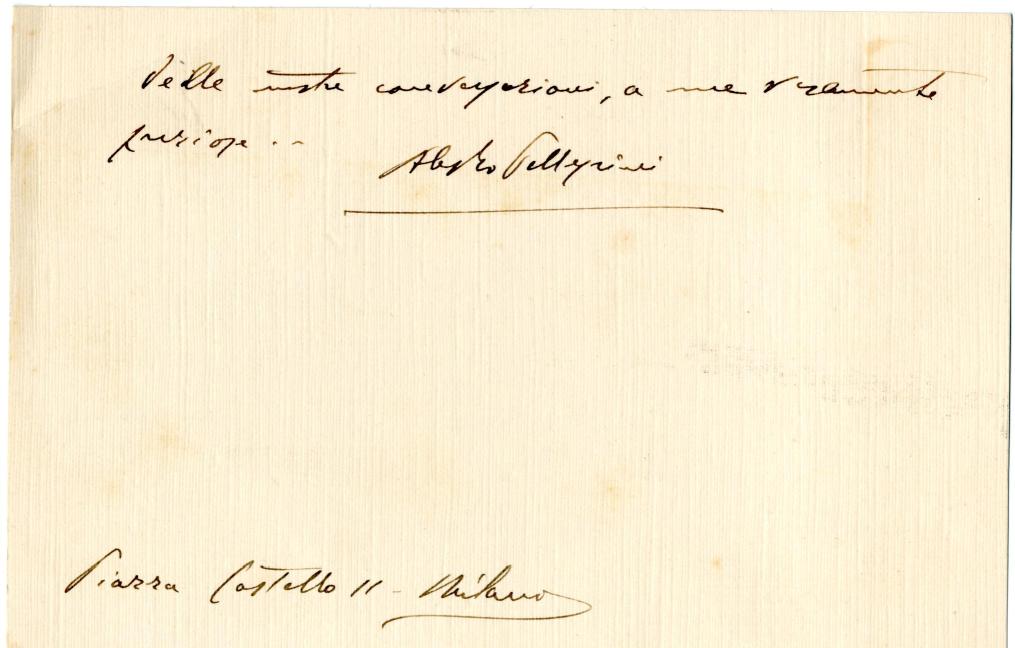 delle nostre conversazioni, a me veramente
preziose. -
Pellegrini
Piazza Castello 11 - Milano